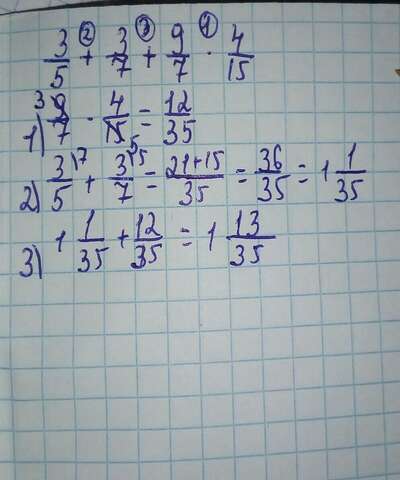 3/5 +② 3/7 +③ 9/7 ·① 4/15
1) 9/7 · 4/15 = 12/35
2) 3/5 + 3/7 = 21+15/35 = 36/35 = 1 1/35
3) 1 1/35 + 12/35 = 1 13/35